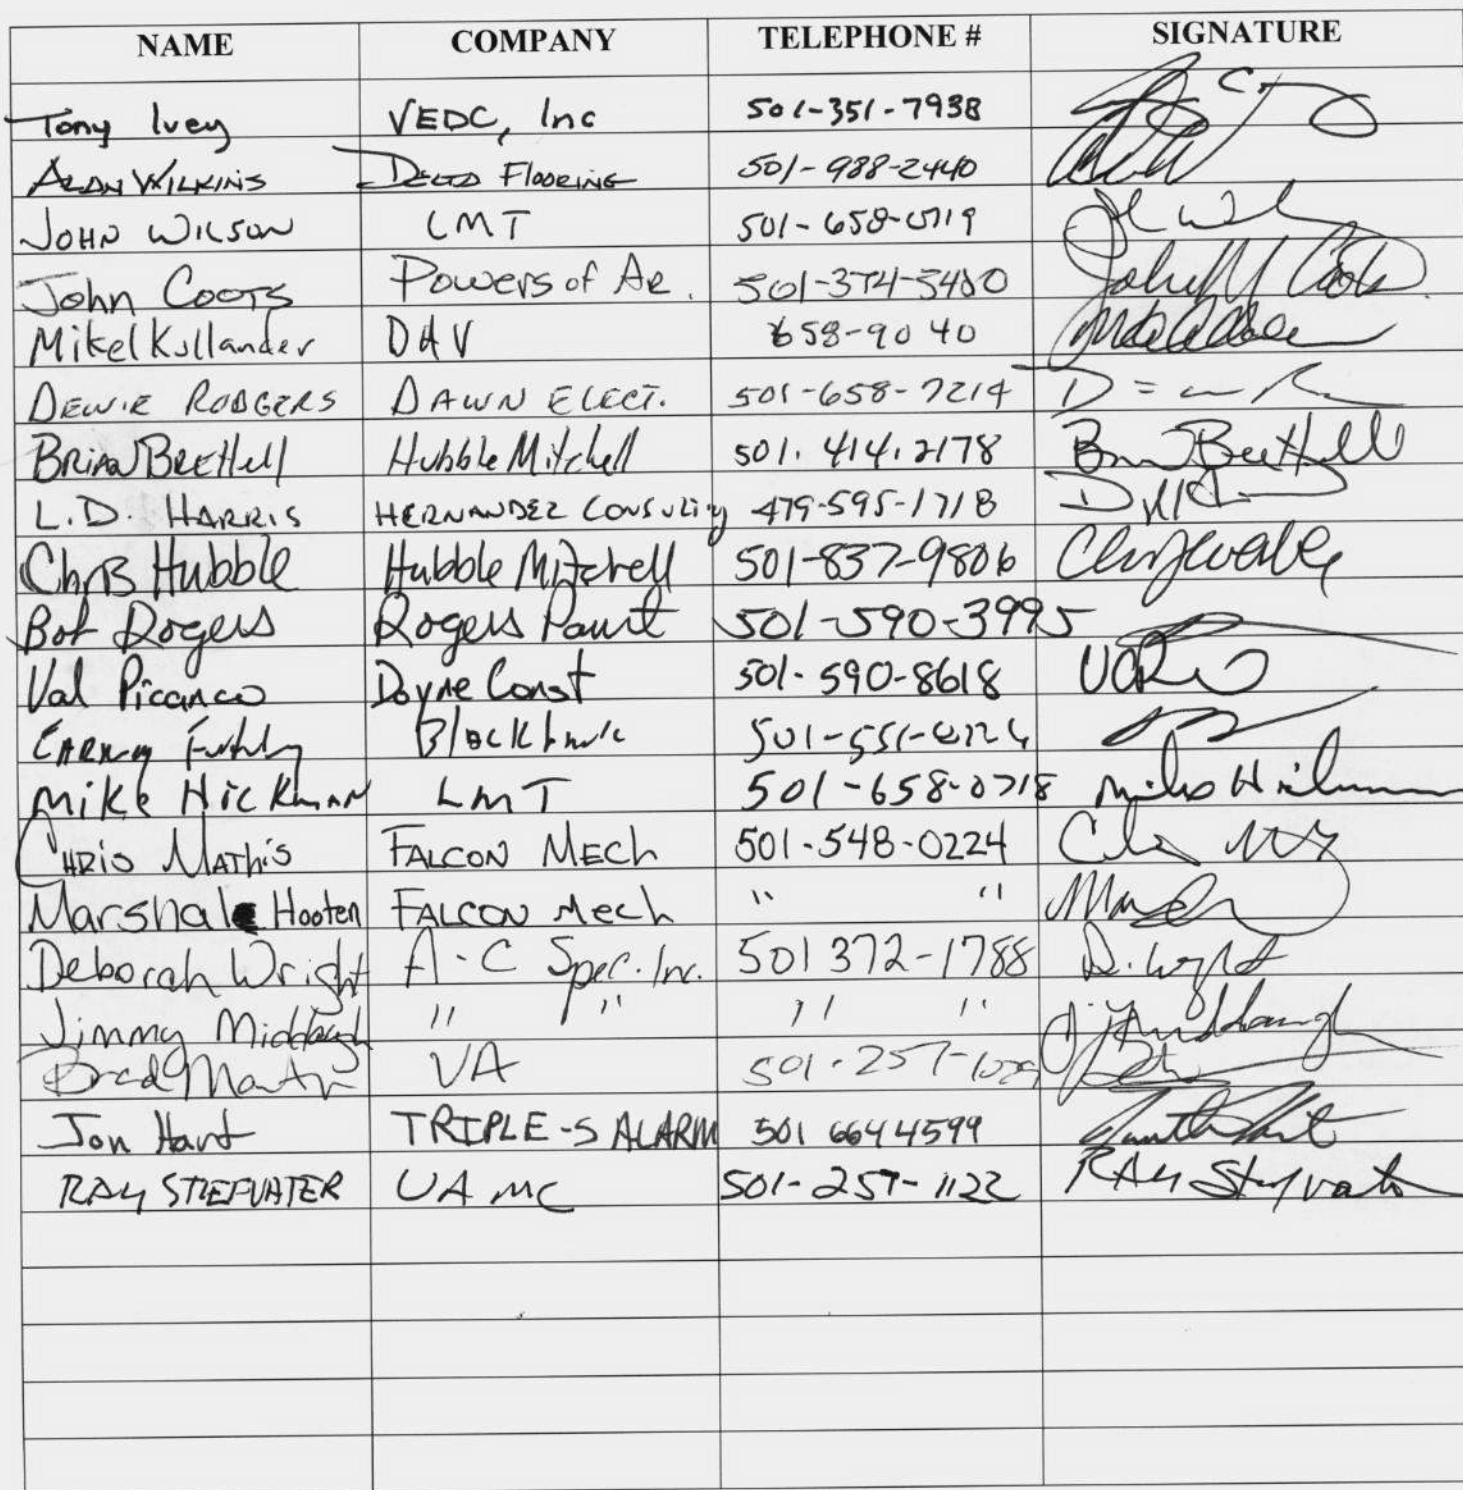 NAME COMPANY TELEPHONE # SIGNATURE
Tony Ivey VEDC, Inc 501-351-7938
ALAN WILKINS DELTA FLOORING 501-988-2440
JOHN WILSON LMT 501-658-0719
John Coots Powers of Ar. 501-374-5400 John M Coots
Mikel Kullander DAV 658-9040
DEWIE RODGERS DAWN ELECT. 501-658-7214
BRIAN BREttell Hubble Mitchell 501.414.2178 Brian Brettell
L.D. HARRIS HERNANDEZ CONSULting 479-595-1718
Chris Hubble Hubble Mitchell 501-837-9806
Bob Rogers Rogers Paint 501-590-3995
Val Picanco Doyne Const 501-590-8618
501-551-0226
Mike Hickman LMT 501-658-0718 Mike Hickman
CHRIS MAThis FALCON MECh 501-548-0224
Marshale Hooten FALCON Mech " "
Deborah Wright A-C Spec. Inc. 501 372-1788 D. Wright
Jimmy Middaugh " " " "
Brad Martin VA 501-257-
Jon Hart TRIPLE-S ALARM 501 664 4599
RAY STIEFVATER VAMC 501-257-1122 RAY Stiefvater